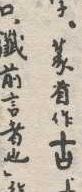 字。篆省作古
口。識前言者也